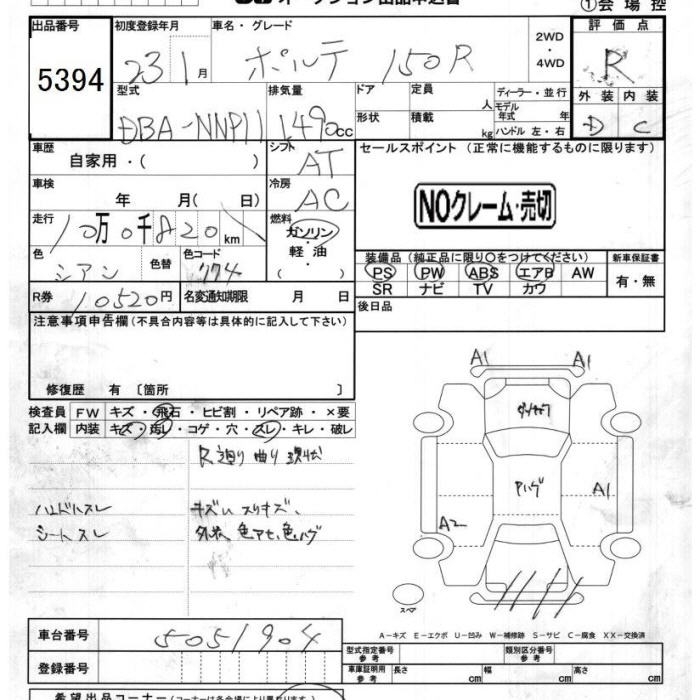 オークション出品申込書
①会場控
出品番号 初度登録年月 車名・グレード 評価点
5394 23 1月 ポルテ 150R 2WD ・ 4WD R
型式 排気量 ドア 定員 人 ディーラー・並行 外装 内装
DBA-NNP11 1490cc 形状 積載 kg モデル年式 年 ハンドル 左・右 D C
車歴 シフト セールスポイント (正常に機能するものに限ります)
自家用・( ) AT
車検 冷房
年 月( 日) AC NOクレーム・売切
走行 燃料
10万0千820km ガソリン
色 色替 色コード 軽油 装備品 (純正品に限り〇をつけてください) 新車保証書
シアン 774 ・ ( ) PS PW ABS エアB AW 有・無
SR ナビ TV カワ
R券 10520円 名変通知期限 月 日 後日品
注意事項申告欄 (不具合内容等は具体的に記入して下さい)
修復歴 有 〔箇所 〕
検査員 FW キズ・飛石・ヒビ割・リペア跡・×要
記入欄 内装 キズ・汚レ・コゲ・穴・スレ・キレ・破レ
R廻り曲り現状
ハンドルスレ キズ
シートスレ 外装 色アセ、色ハゲ
A1 A1
Pハゲ
A1
A2
スペア
A-キズ E-エクボ U-凹み W-補修跡 S-サビ C-腐食 XX-交換済
車台番号 5051904
登録番号
型式指定番号 参考 類別区分番号 参考
車庫証明用 参考 長さ cm 幅 cm 高さ cm
希望出品コーナー